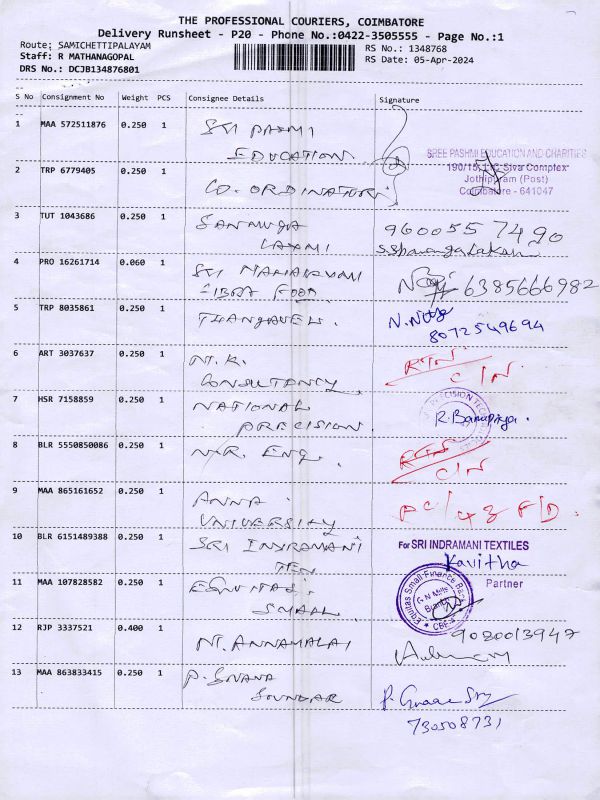 THE PROFESSIONAL COURIERS, COIMBATORE
Delivery Runsheet - P20 - Phone No.:0422-3505555 - Page No.:1
Route: SAMICHETTIPALAYAM RS No.: 1348768
Staff: R MATHANAGOPAL RS Date: 05-Apr-2024
DRS No.: DCJB134876801
S No Consignment No Weight PCS Consignee Details Signature
1 MAA 572511876 0.250 1 SRI PASMI
EDUCATION
SREE PASHMI EDUCATION AND CHARITIES
2 TRP 6779405 0.250 1 CO-ORDINATOR
Siva Complex
Jothipuram (Post)
Coimbatore - 641047
3 TUT 1043686 0.250 1 9600557490
LAXMI
4 PRO 16261714 0.060 1 SRI 6385666982
FOOD
5 TRP 8035861 0.250 1 THANGAVEL.
8072549694
6 ART 3037637 0.250 1 M.K. RTN
CONSULTANCY C/N
7 HSR 7158859 0.250 1 NATIONAL
PRECISION. R.
8 BLR 5550850086 0.250 1 N.R. ENG. RTN
C/N
9 MAA 865161652 0.250 1 ANNA
UNIVERSITY
10 BLR 6151489388 0.250 1 SRI INDRAMANI For SRI INDRAMANI TEXTILES
TEX Kavitha
Partner
11 MAA 107828582 0.250 1 EQUITAS Equitas Small Finance Bank
SMALL G N Mills Branch
CBE
12 RJP 3337521 0.400 1 M. ANNAMALAI
13 MAA 863833415 0.250 1 P. GNANA
SOUNDAR
730508731